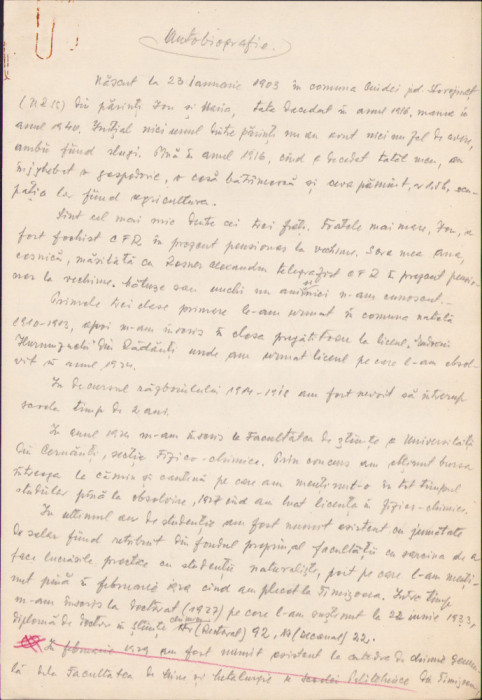 Autobiografie.
Născut la 23 Ianuarie 1903 în comuna jud.
din părinții Ion și Maria, tata decedat în anul 1916, mama în
anul 1940. Inițial nici unul dintre părinți nu au avut nici un fel de avere,
ambii fiind slugi. Pînă în anul 1916, cînd a decedat tatăl meu, au
înjghebat o gospodărie, o casă bătrînească și ceva pămînt,
fiind agricultura.
Sînt cel mai mic dintre cei trei frați. Fratele mai mare, Ion, a
fost fochist CFR în prezent pensionar la vechime. Sora mea Ana,
casnică, măritată cu Alexandru telegrafist CFR în prezent pensio-
nar la vechime. sau unchi nu am n-am cunoscut.
Primele trei clase primare le-am urmat în comuna natală
1910-1913, apoi m-am înscris în clasa pregătitoare la liceul
din unde am urmat liceul pe care l-am absol-
vit în anul 1924.
În decursul războiului 1914-1918 am fost nevoit să întrerup
școala timp de 2 ani.
În anul 1924 m-am înscris la Facultatea de științe a Universității
din Cernăuți, secția Fizico-chimice. Prin concurs am obținut bursa
întreagă la cămin și cantină pe care am menținut-o în tot timpul
studiilor pînă la absolvire, 1927 cînd am luat licența în fizico-chimice.
În ultimul an de studenție am fost numit asistent cu jumătate
de salar fiind retribuit din fondul propriu al facultății cu sarcina de a
face lucrările practice cu studenții naturaliști, post pe care l-am menți-
nut pînă în februarie 1929 cînd am plecat la Timișoara. Între timp
m-am înscris la doctorat (1927) pe care l-am susținut la 22 iunie 1933,
diploma de doctor în științe chimice Nr (Rectorat) 92, Nr (Decanat) 22.
În februarie 1929 am fost numit asistent la catedra de chimie genera-
lă dela Facultatea de Mine și Metalurgie a Școlii Politehnice din Timișoara